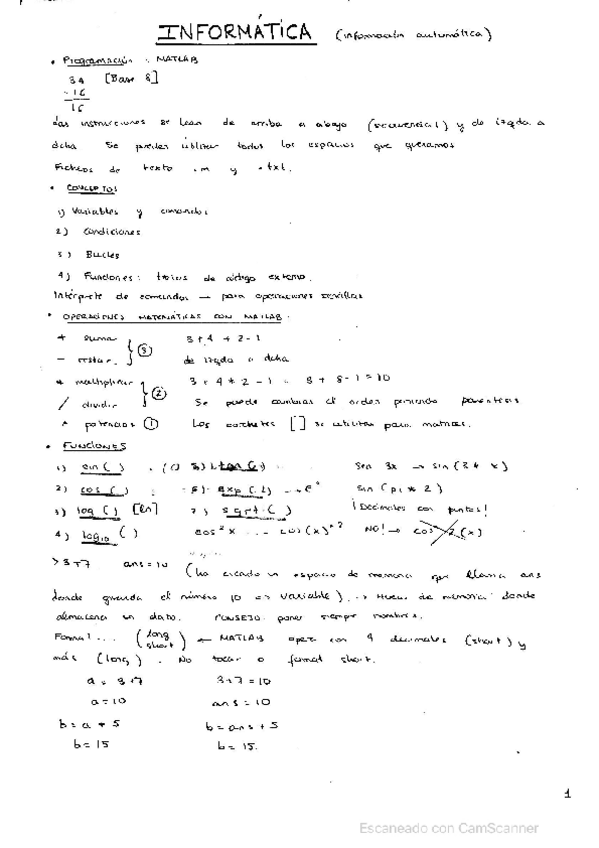 INFORMÁTICA (información automática)
• Programación: MATLAB
34 [Base 8]
-16
16
Las instrucciones se leen de arriba a abajo (secuencial) y de izqda a
dcha Se pueden utilizar todos los espacios que queramos
Ficheros de texto .m y .txt.
• CONCEPTOS
1) Variables y comandos
2) Condiciones
3) Bucles
4) Funciones: trozos de código externo.
Intérprete de comandos → para operaciones sencillas
• OPERACIONES MATEMÁTICAS CON MATLAB.
+ suma } ③ 3+4+2-1
- restar de izqda a dcha
* multiplicar } ② 3+4*2-1 = 3+8-1=10
/ dividir Se puede cambiar el orden poniendo paréntesis
^ potencias ① Los corchetes [ ] se utilizan para matrices.
• FUNCIONES
1) sin( ) tan( ) sen 3x → sin(3*x)
2) cos( ) exp( ) e sin(pi*2)
3) log( ) [ln] 7) sqrt( ) ¡Decimales con puntos!
4) log10 ( ) cos² x ... cos(x)^2 NO! → cos^2(x)
>3+7 ans=10 (ha creado un espacio de memoria que llama ans
donde guarda el número 10 => variable) → Hueco de memoria donde
almacena un dato. CONSEJO: poner siempre nombres.
Format ... (long short) ← MATLAB opera con 4 decimales (short) y
más (long). No tocar o format short.
a = 3+7 3+7=10
a=10 ans=10
b=a+5 b=ans+5
b=15 b=15.
1
Escaneado con CamScanner